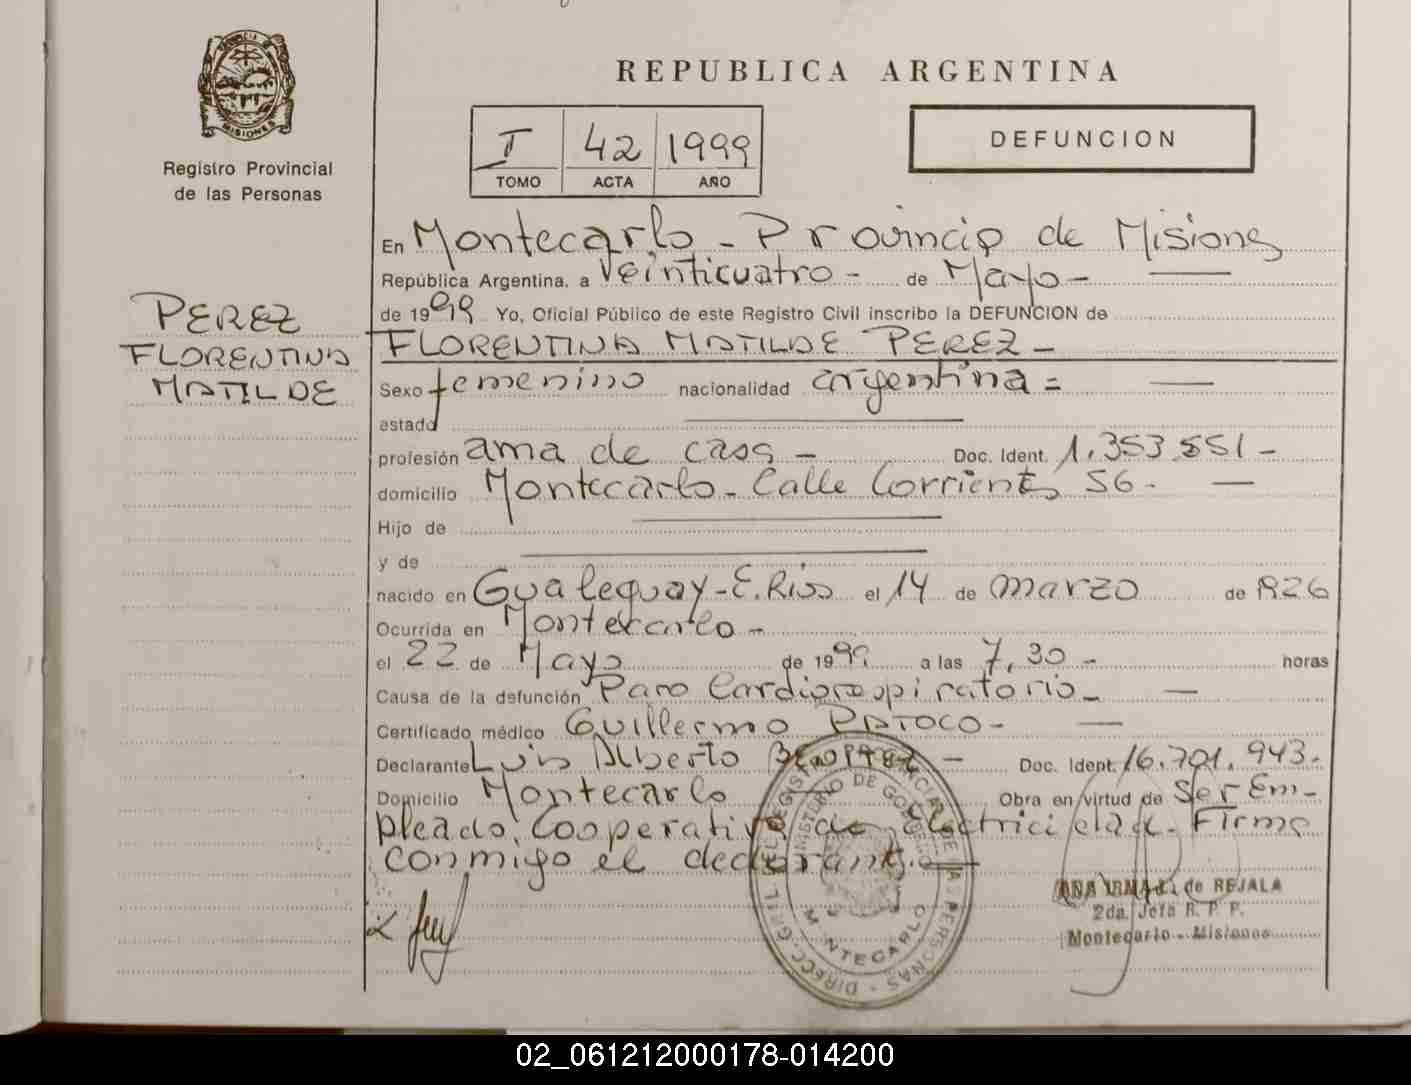 PROVINCIA DE
MISIONES
Registro Provincial
de las Personas
PEREZ
FLORENTINA
MATILDE
REPUBLICA ARGENTINA
I 42 1999
TOMO ACTA AÑO
DEFUNCION
En Montecarlo - Provincia de Misiones
República Argentina, a Veinticuatro - de Mayo -
de 1999 Yo, Oficial Público de este Registro Civil inscribo la DEFUNCION de
FLORENTINA MATILDE PEREZ -
Sexo femenino nacionalidad argentina =
estado
profesión ama de casa - Doc. Ident. 1.353.551 -
domicilio Montecarlo - Calle Corrientes 56 -
Hijo de
y de
nacido en Gualeguay - E. Rios el 14 de marzo de 1926
Ocurrida en Montecarlo -
el 22 de Mayo de 1999 a las 7,30 - horas
Causa de la defunción Paro Cardiorespiratorio -
Certificado médico Guillermo PATOCO -
Declarante Luis Alberto - Doc. Ident. 16.701.943 -
Domicilio Montecarlo Obra en virtud de Ser Em-
pleado Cooperativa de Electricidad. Firma
conmigo el declarante. -
DIRECC. GRAL. DEL REGISTRO PROVINCIAL DE LAS PERSONAS
MINISTERIO DE GOBIERNO
MONTECARLO
ANA IRMA de REJALA
2da. Jefa R. P. P.
Montecarlo - Misiones
02_061212000178-014200